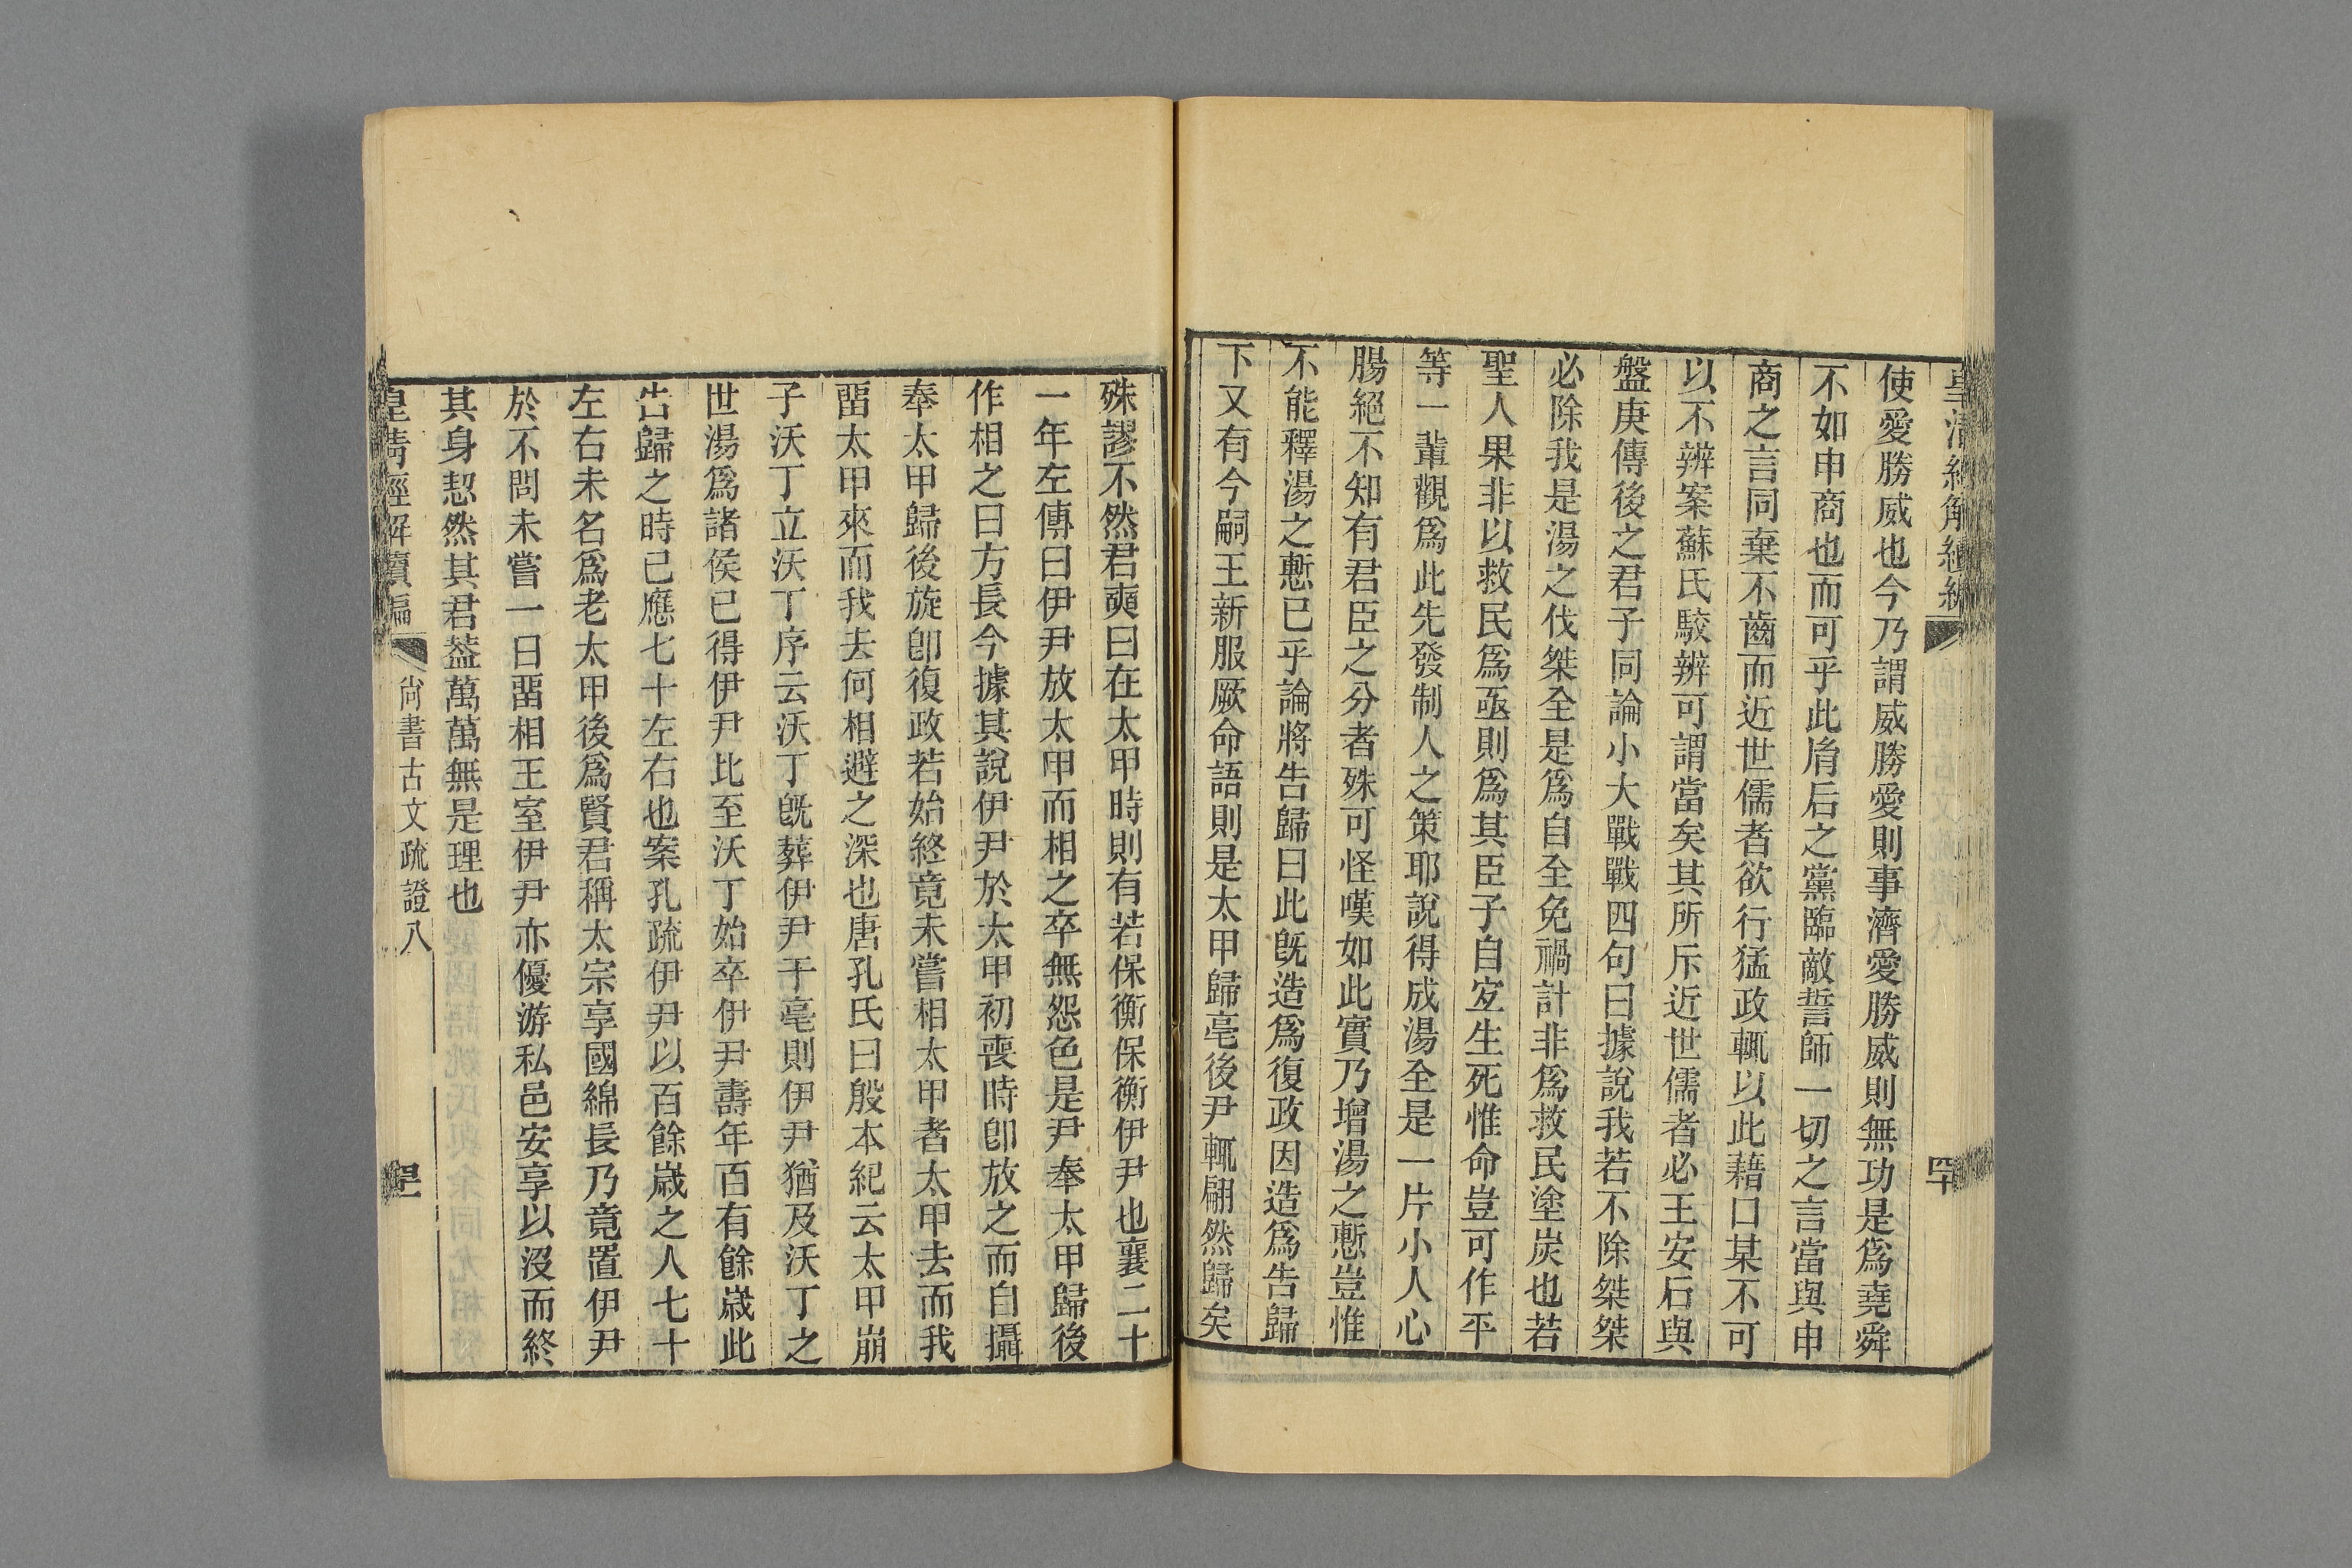 皇清經解續編
四十
使愛勝威也今乃謂威勝愛則事濟愛勝威則無功是爲堯舜
不如申商也而可乎此胤后之黨臨敵誓師一切之言當與申
商之言同棄不齒而近世儒者欲行猛政輒以此藉口某不可
以不辨案蘇氏駮辨可謂當矣其所斥近世儒者必王安石與
盤庚傳後之君子同論小大戰戰四句曰據說我若不除桀桀
必除我是湯之伐桀全是爲自全免禍計非爲救民塗炭也若
聖人果非以救民爲亟則爲其臣子自宐生死惟命豈可作平
等一輩觀爲此先發制人之策耶說得成湯全是一片小人心
腸絕不知有君臣之分者殊可怪嘆如此實乃增湯之慙豈惟
不能釋湯之慙已乎論將告歸曰此旣造爲復政因造爲告歸
下又有今嗣王新服厥命語則是太甲歸亳後尹輒翩然歸矣
殊謬不然君奭曰在太甲時則有若保衡保衡伊尹也襄二十
一年左傳曰伊尹放太甲而相之卒無怨色是尹奉太甲歸後
作相之曰方長今據其說伊尹於太甲初喪時卽放之而自攝
奉太甲歸後旋卽復政若始終竟未嘗相太甲者太甲去而我
畱太甲來而我去何相避之深也唐孔氏曰殷本紀云太甲崩
子沃丁立沃丁序云沃丁旣葬伊尹于亳則伊尹猶及沃丁之
世湯爲諸侯已得伊尹比至沃丁始卒伊尹壽年百有餘歲此
告歸之時已應七十左右也案孔疏伊尹以百餘歲之人七十
左右未名爲老太甲後爲賢君稱太宗享國綿長乃竟置伊尹
於不問未嘗一日畱相王室伊尹亦優游私邑安享以沒而終
其身恝然其君葢萬萬無是理也
皇清經解續編
尙書古文疏證八